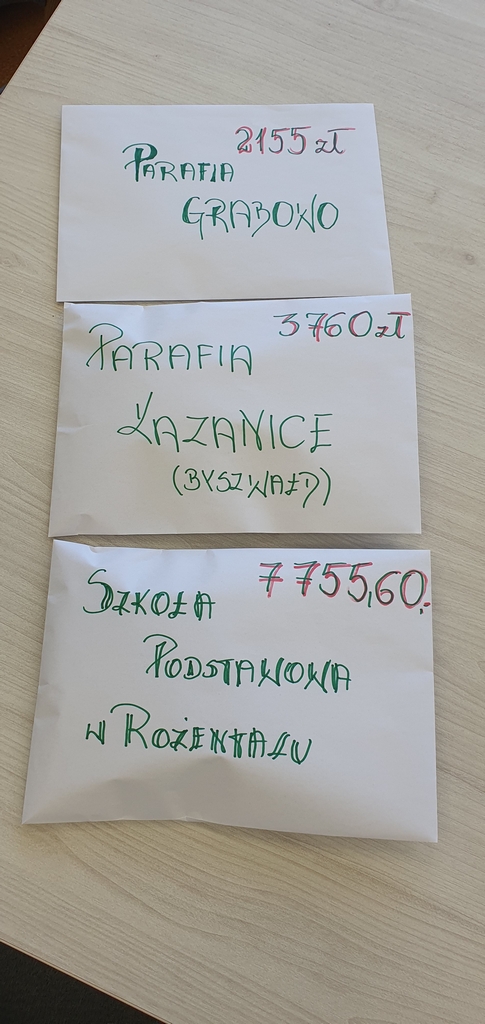 2155 zł
PARAFIA
GRABOWO
3760 zł
PARAFIA
ŁAZANICE
(BYSZWAŁD)
7 755,60.
SZKOŁA
PODSTAWOWA
W ROŻENTALU